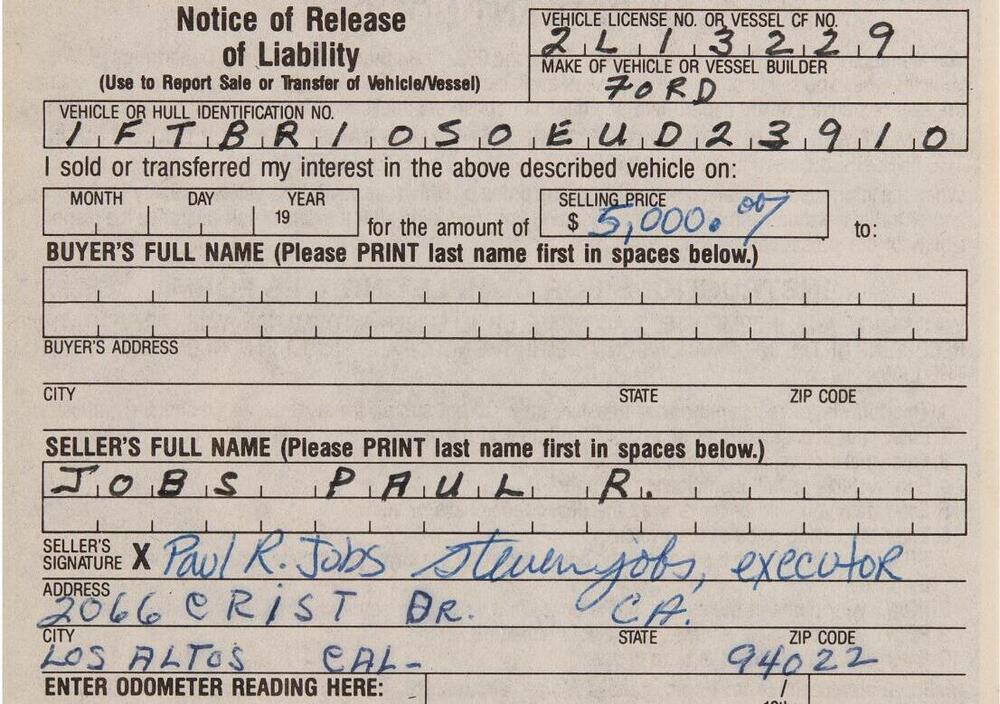 Notice of Release
of Liability
(Use to Report Sale or Transfer of Vehicle/Vessel)
VEHICLE LICENSE NO. OR VESSEL CF NO.
2L13229
MAKE OF VEHICLE OR VESSEL BUILDER
FORD
VEHICLE OR HULL IDENTIFICATION NO.
1FTBR10S0EUD23910
I sold or transferred my interest in the above described vehicle on:
MONTH DAY YEAR
19
for the amount of
SELLING PRICE
$ 5,000.00
to:
BUYER'S FULL NAME (Please PRINT last name first in spaces below.)
BUYER'S ADDRESS
CITY STATE ZIP CODE
SELLER'S FULL NAME (Please PRINT last name first in spaces below.)
JOBS PAUL R.
SELLER'S
SIGNATURE X Paul R. Jobs steven jobs, executor
ADDRESS
2066 CRIST DR. CA.
CITY STATE ZIP CODE
LOS ALTOS CAL- 94022
ENTER ODOMETER READING HERE: